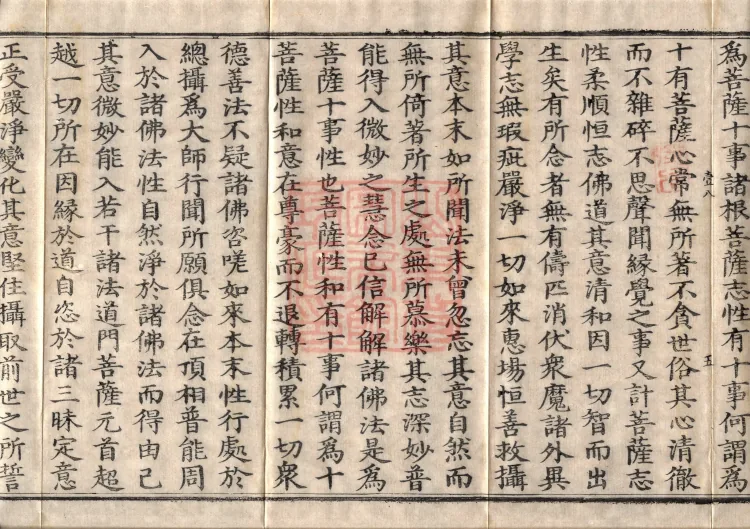 為菩薩十事諸根菩薩志性有十事何謂為
十有菩薩心常無所著不貪世俗其心清徹
而不雜碎不思聲聞緣覺之事又計菩薩志
性柔順恒志佛道其意清和因一切智而出
生矣有所念者無有儔匹消伏眾魔諸外異
學志無瑕疵嚴淨一切如來惠場恒善救攝
其意本末如所聞法未曾忽忘其意自然而
無所倚著所生之處無所慕樂其志深妙普
能得入微妙之慧念已信解解諸佛法是為
菩薩十事性也菩薩性和有十事何謂為十
菩薩性和意在尊豪而不退轉積累一切眾
德善法不疑諸佛咨嗟如來本末性行處於
總攝為大師行聞所願俱念在頂相普能周
入於諸佛法性自然淨於諸佛法而得由己
其意微妙能入若干諸法道門菩薩元首超
越一切所在因緣於道自恣於諸三昧定意
正受嚴淨變化其意堅住攝取前世之所誓
壹八
五